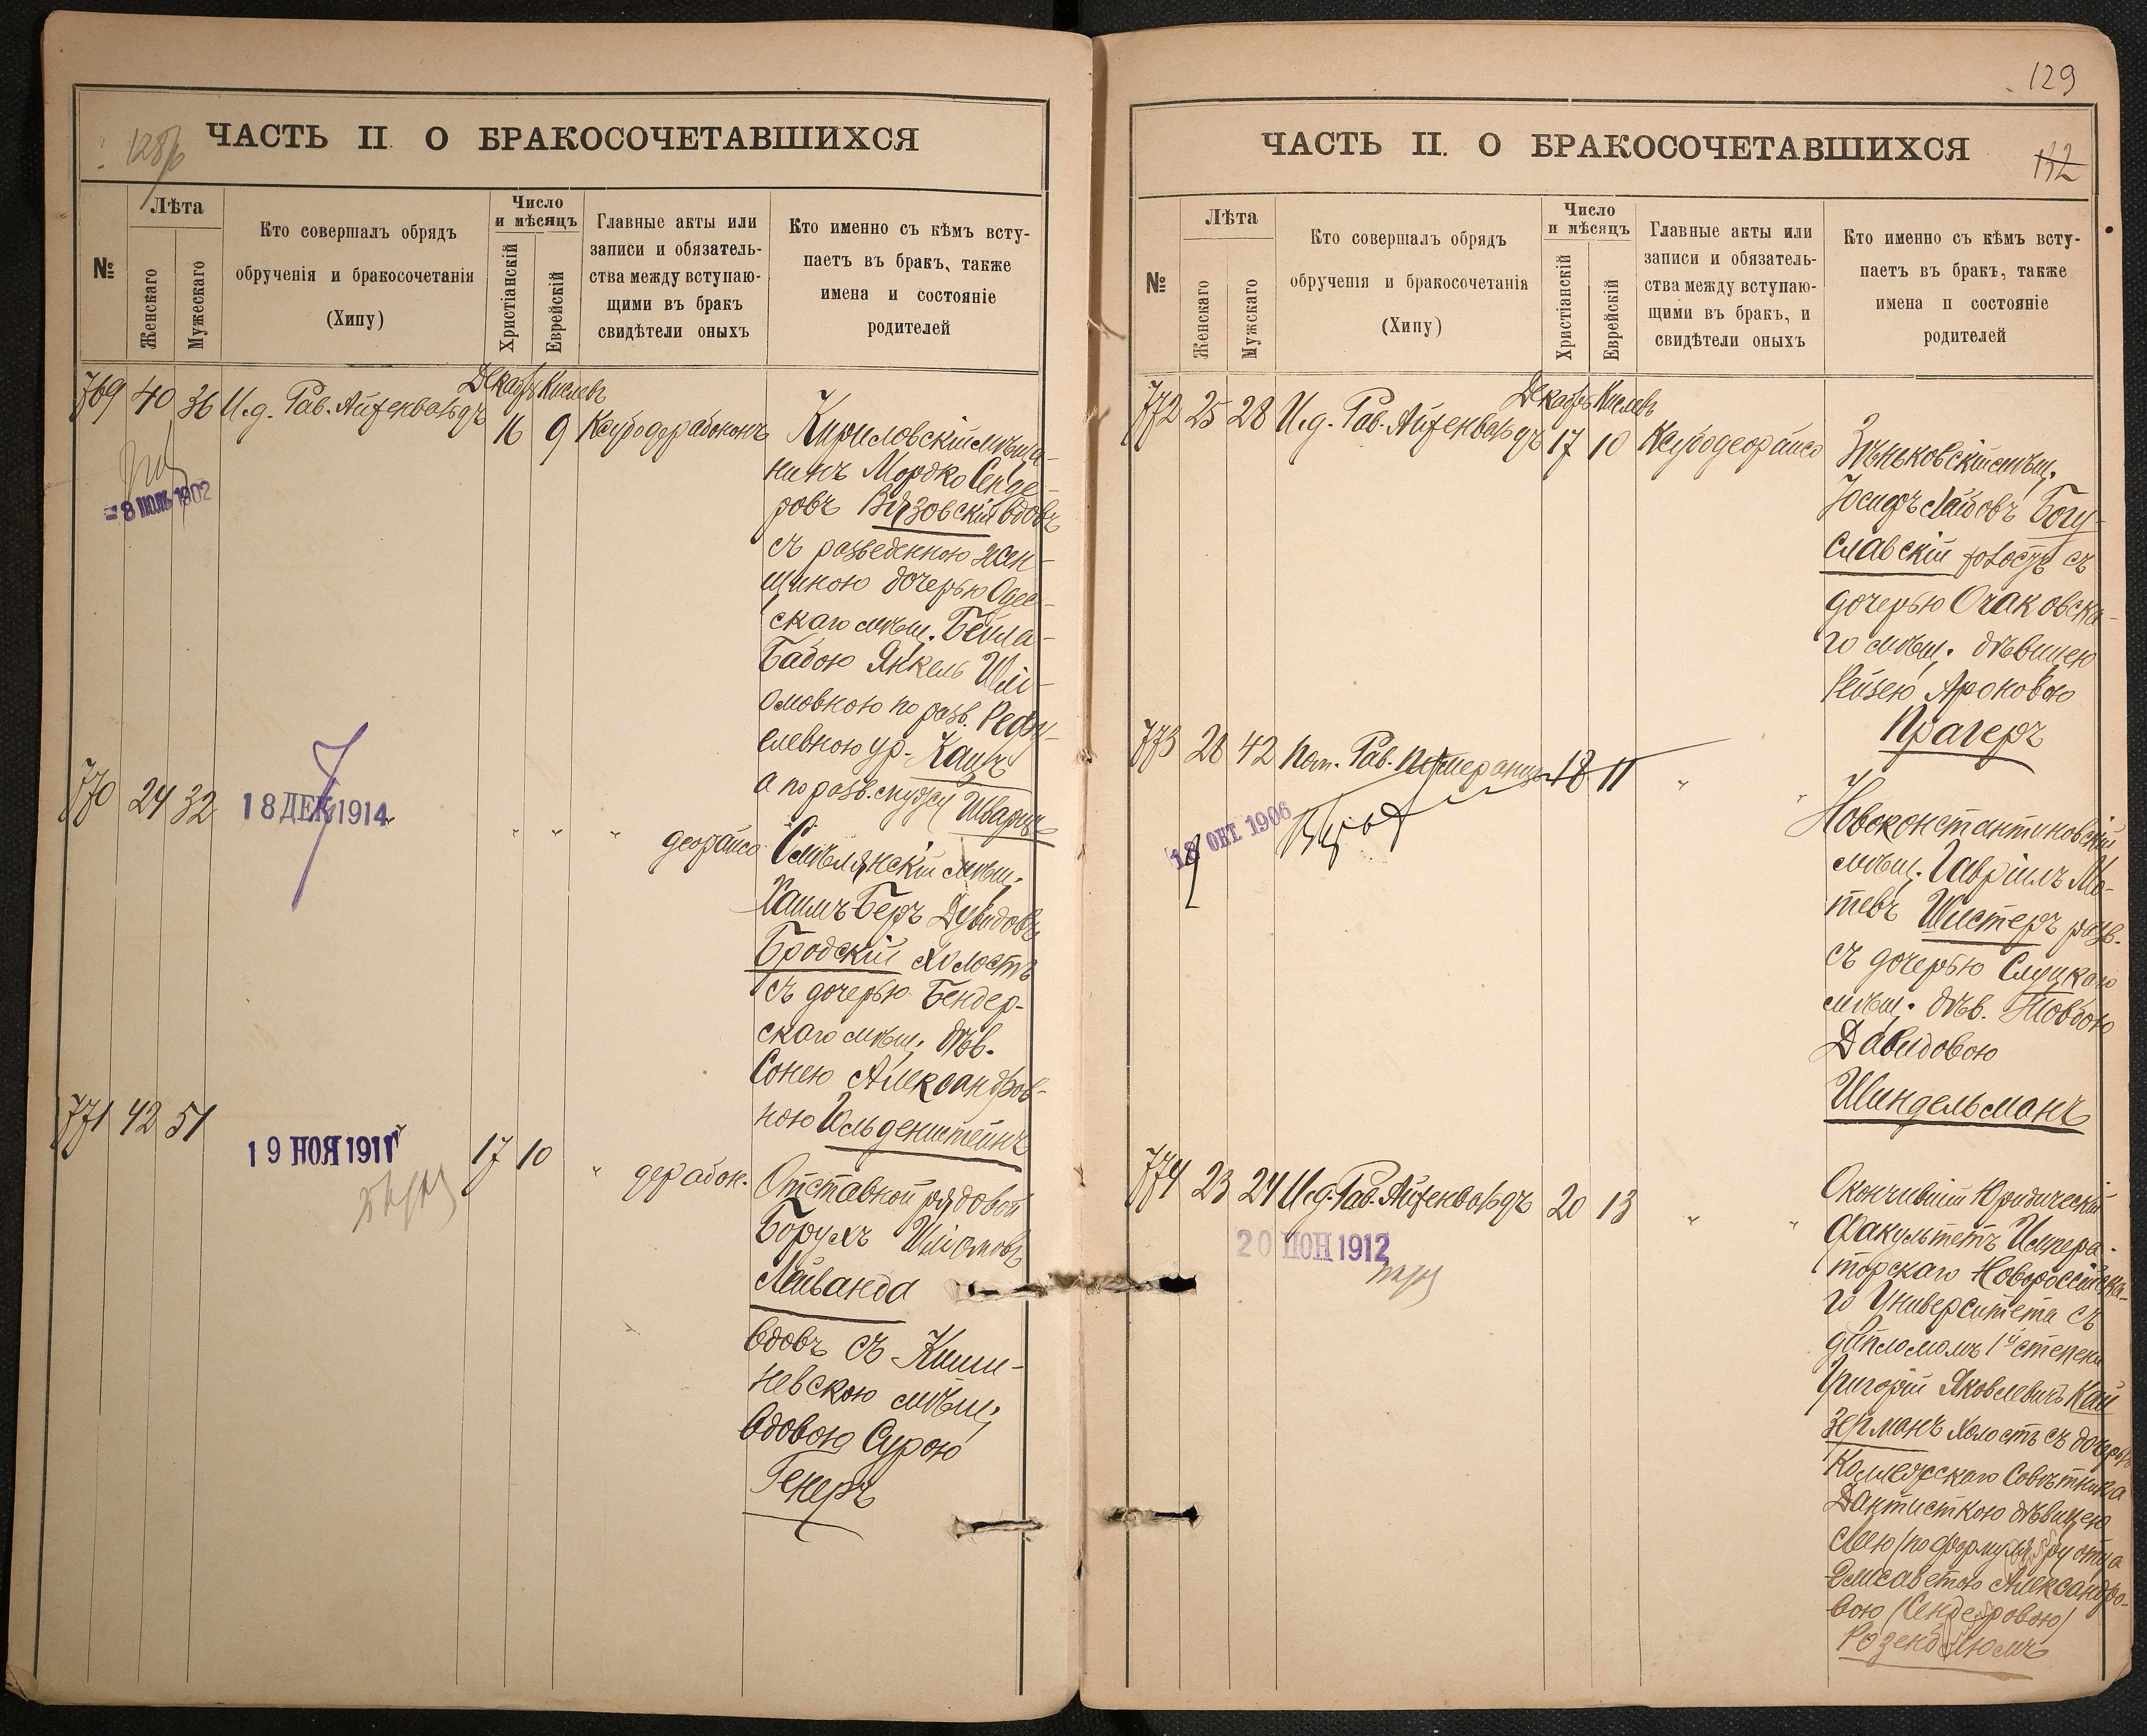 ЧАСТЬ II О БРАКОСОЧЕТАВШИХСЯ
№
Лѣта
Женскаго
Мужескаго
Кто совершалъ обрядъ
обрученія и бракосочетанія
(Хипу)
Число
и мѣсяцъ
Христіанскій
Еврейскій
Главные акты или
записи и обязатель-
ства между вступаю-
щими въ бракъ
свидѣтели оныхъ
Кто именно съ кѣмъ всту-
паетъ въ бракъ, также
имена и состояніе
родителей
Декабрь Кислевъ
769 40 36 И.д. Рав. Айзенвальдъ 16 9
8 ИЮЛЬ 1902
Кириловскій мѣща-
нинъ Мордко Сенде-
ровъ Вязовскій вдовъ
съ разведенною жен-
щиною дочерью Одес-
скаго мѣщ. Бейла-
Бабою Янкель Шлі-
омовною по разв. Рефу-
елевною ур. Кацъ
а по разв. мужу Шварцъ
770 24 32
18 ДЕК 1914
" " "
Смѣлянскій мѣщ.
Хаимъ-Беръ Дувидовъ
Бродскій холостъ
съ дочерью Бендер-
скаго мѣщ. дѣв.
Сонею Александров-
ною Гольденштейнъ
771 42 51 17 10 "
19 НОЯ 1911
Отставной рядовой
Борухъ Шліомовъ
Лейванда
вдовъ съ Киши-
невскою мѣщ.
вдовою Сурою
Генеръ
129
ЧАСТЬ II. О БРАКОСОЧЕТАВШИХСЯ
132
№
Лѣта
Женскаго
Мужскаго
Кто совершалъ обрядъ
обрученія и бракосочетанія
(Хипу)
Число
и мѣсяцъ
Христіанскій
Еврейскій
Главные акты или
записи и обязатель-
ства между вступаю-
щими въ бракъ, и
свидѣтели оныхъ
Кто именно съ кѣмъ всту-
паетъ въ бракъ, также
имена и состояніе
родителей
Декабрь Кислевъ
772 25 28 И.д. Рав. Айзенвальдъ 17 10
Зѣньковскій мѣщ.
Іосифъ Лейбовъ Богу-
славскій холостъ съ
дочерью Очаковска-
го мѣщ. дѣвицею
Рейзею Ароновою
Прагеръ
773 26 42 Пом. Рав. 18 11 " "
18 ОКТ 1906
Новоконстантиновскій
мѣщ. Гавріилъ Мо-
тевъ Шистеръ разв.
съ дочерью Слуцкаго
мѣщ. дѣв. Товбою
Давидовою
Шиндельманъ
774 23 24 И.д. Рав. Айзенвальдъ 20 13 " "
20 ІЮН 1912
Окончившій Юридическій
факультетъ Импера-
торскаго Новороссійска-
го Университета съ
дипломомъ 1й степени
Григорій Яковлевичъ Кай
зерманъ холостъ съ дочерью
Коллежскаго Совѣтника
Дантисткою дѣвицею
Леею /по формуляру отца
Елисаветою Александро-
вою /Сендеровою/
Розенблюмъ